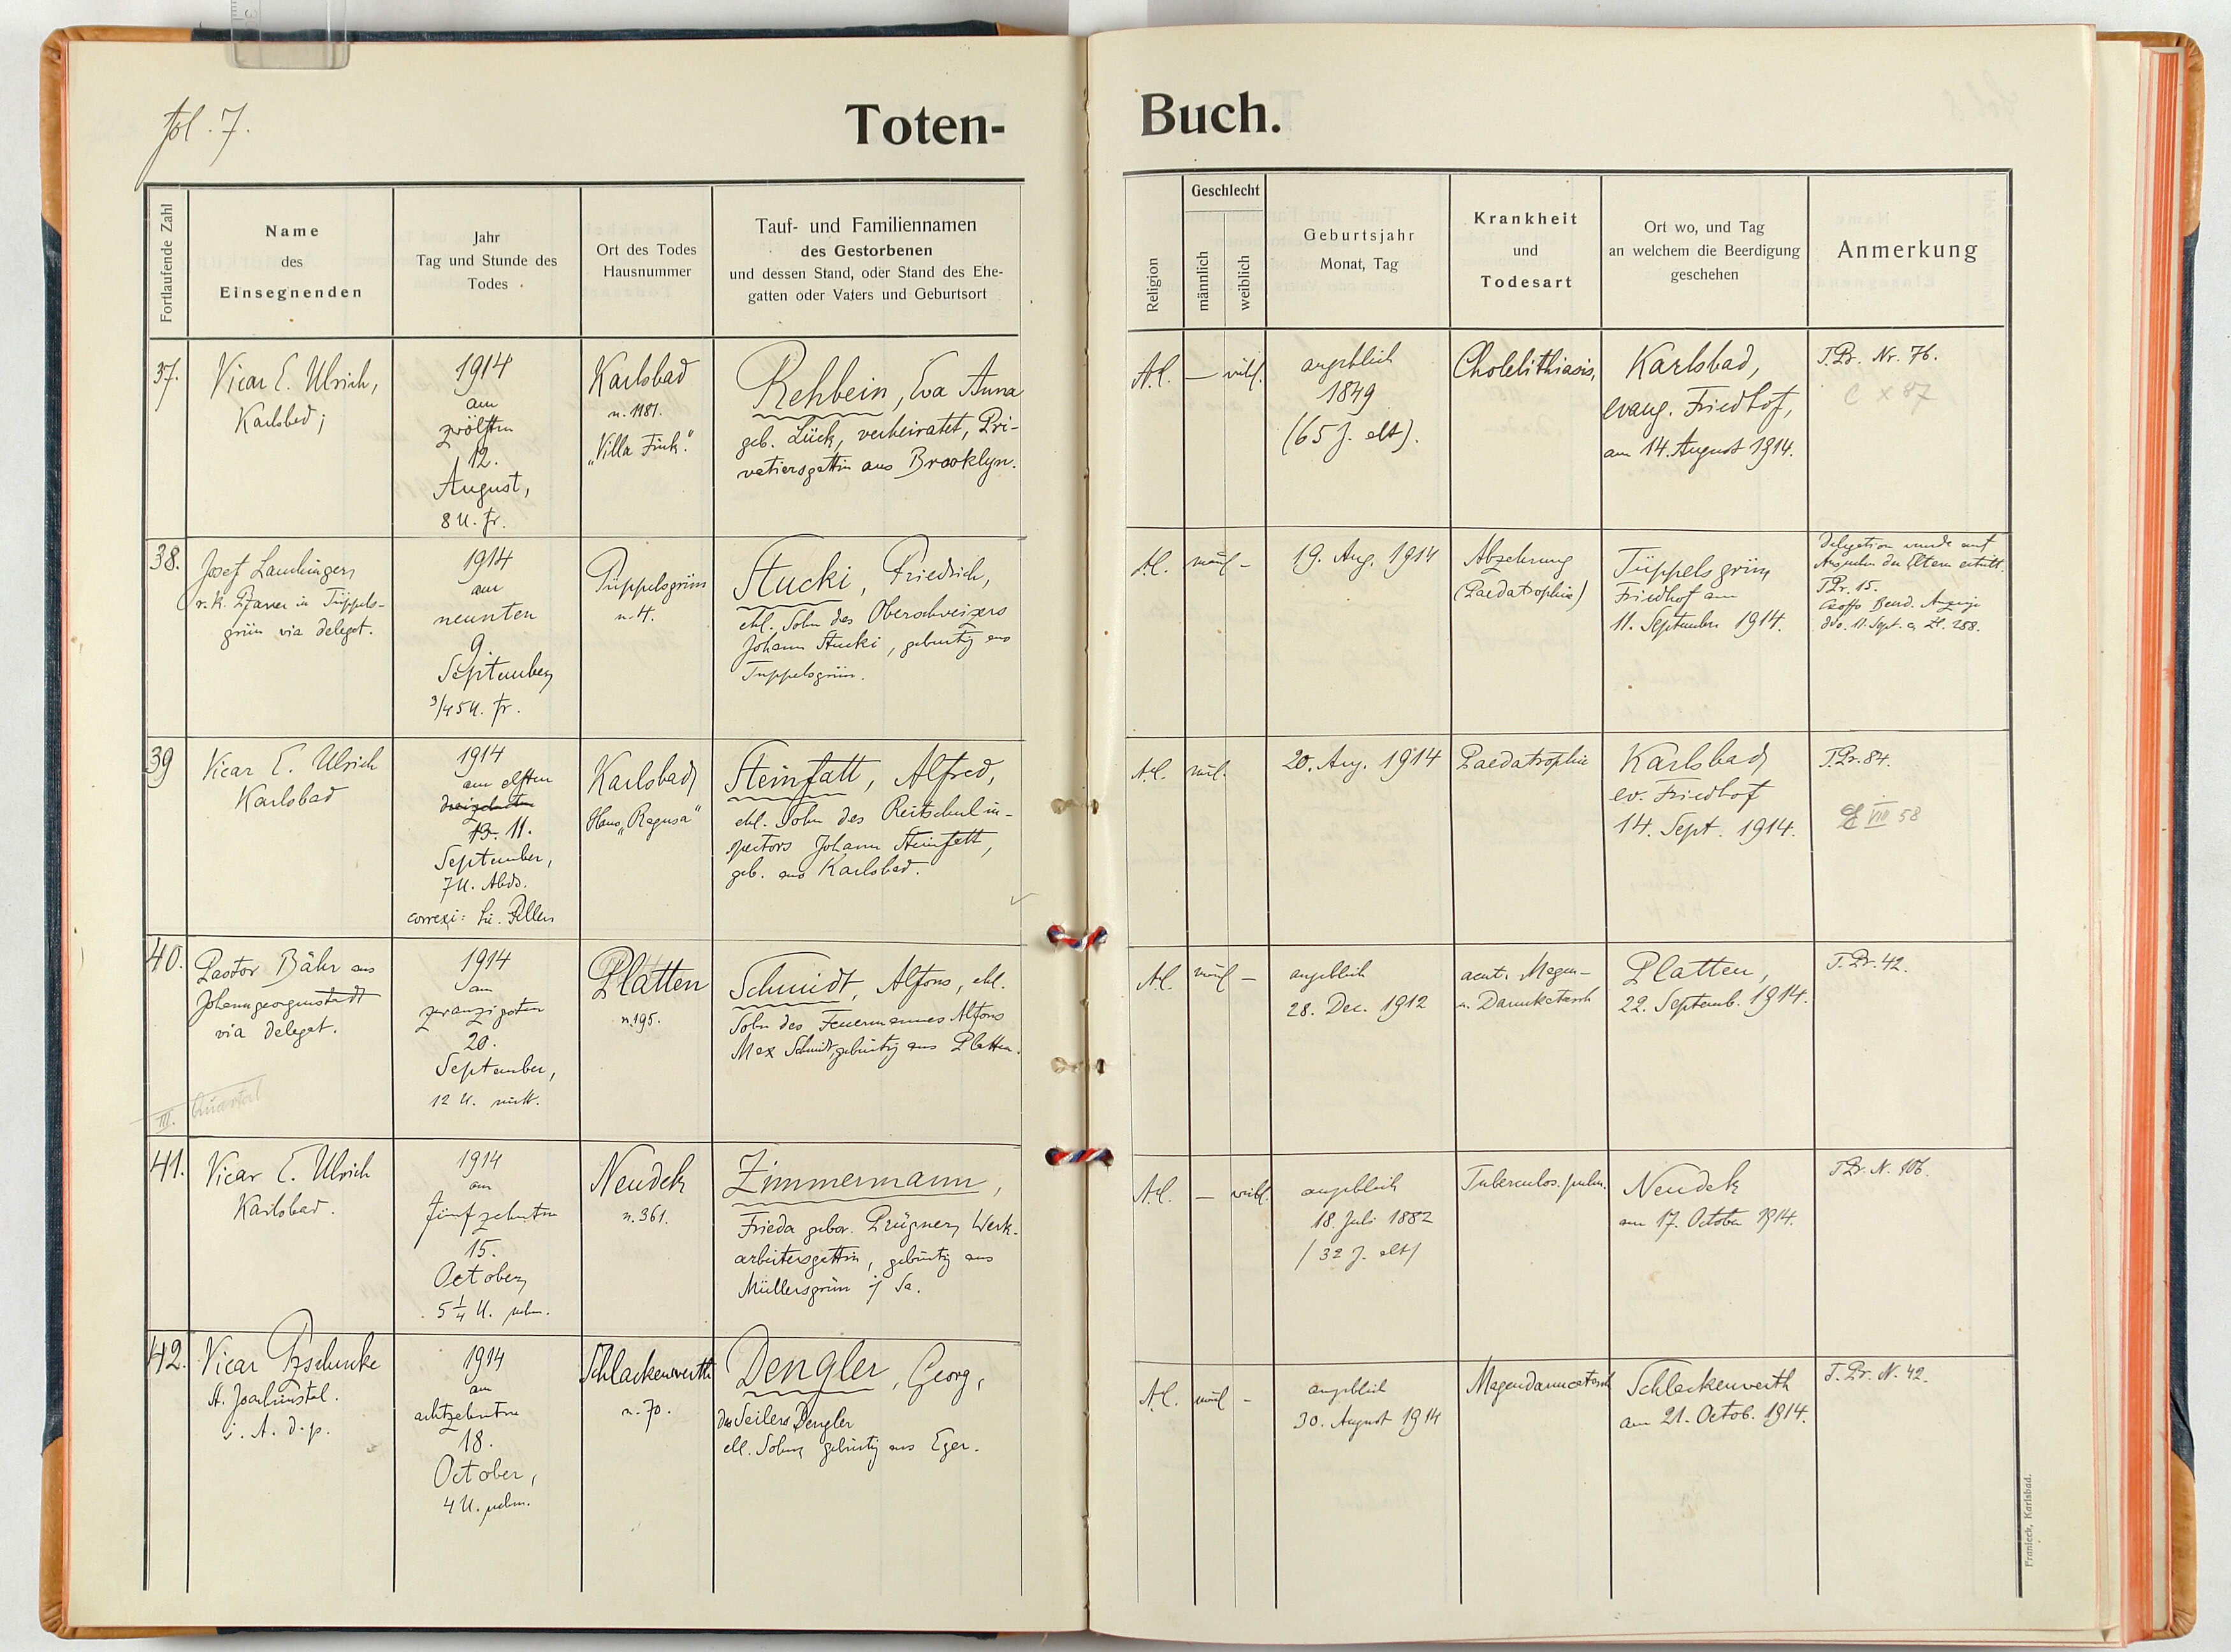 fol. 7.
Toten-
Buch.
Fortlaufende Zahl
Name
des
Einsegnenden
Jahr
Tag und Stunde des
Todes
Ort des Todes
Hausnummer
Tauf- und Familiennamen
des Gestorbenen
und dessen Stand, oder Stand des Ehe-
gatten oder Vaters und Geburtsort
Religion
Geschlecht
männlich
weiblich
Geburtsjahr
Monat, Tag
Krankheit
und
Todesart
Ort wo, und Tag
an welchem die Beerdigung
geschehen
Anmerkung
37.
Vicar E. Ulrich,
Karlsbad;
1914
am
zwölften
12.
August,
8 U. fr.
Karlsbad
n. 1181.
"Villa Fink."
Rehbein, Eva Anna
geb. Lück, verheiratet, Pri-
vatiersgattin aus Brooklyn.
A.C.
— weibl.
angeblich
1849
(65 J. alt).
Cholelithiasis,
Karlsbad,
evang. Friedhof,
am 14. August 1914.
T.Pr. Nr. 76.
C X 87
38.
Josef
r. k. Pfarrer in Tüppels-
grün via delegat.
1914
am
neunten
9.
September
3/4 5 U. fr.
Tüppelsgrün
n. 4.
Stucki, Friedrich,
ehl. Sohn des Oberschweizers
Johann Stucki, gebürtig aus
Tüppelsgrün.
A.C.
männl —
19. Aug. 1914
Abzehrung
(Paedatrophie)
Tüppelsgrün
Friedhof am
11. September 1914.
Delegation wurde auf
Ansuchen der Eltern erteilt.
T.Pr. 15.
dto. 11. Sept. a. Zl. 258.
39
Vicar E. Ulrich
Karlsbad
1914
am elften
dreizehnten
13. 11.
September,
7 U. Abds.
correxi:
Karlsbad
Haus "Ragusa"
Steinfatt, Alfred,
ehl. Sohn des Reitschulin-
spectors Johann Steinfatt,
geb. aus Karlsbad.
A.C.
männl.
20. Aug. 1914
Paedatrophie
Karlsbad
ev. Friedhof
14. Sept. 1914.
T.Pr. 84.
VIII 58
40.
Pastor Bähr aus
Johanngeorgenstadt
via delegat.
III. Quartal
1914
am
zwanzigsten
20.
September,
12 U. mitt.
Platten
n. 195.
Schmidt, Alfons, ehl.
Sohn des Feuermannes Alfons
Max Schmidt, gebürtig aus Platten.
A.C.
männl —
angeblich
28. Dec. 1912
acut. Magen-
u. Darmkatarrh
Platten,
22. Septemb. 1914.
T.Pr. 42.
41.
Vicar E. Ulrich
Karlsbad.
1914
am
fünfzehnten
15.
October,
5 1/4 U. nchm.
Neudek
n. 361.
Zimmermann,
Frieda gebor. Prügner, Werk-
arbeitersgattin, gebürtig aus
Müllersgrün i/ Sa.
A.C.
— weibl.
angeblich
18. Juli 1882
/32 J. alt/
Tuberculos. pulm.
Neudek
am 17. October 1914.
T.Pr. N. 106.
42.
Vicar
St. Joachimstal.
i. A. d. p.
1914
am
achtzehnten
18.
October,
4 U. nchm.
Schlackenwerth
n. 70.
Dengler, Georg,
des Seilers Dengler
ehl. Sohn, gebürtig aus Eger.
A.C.
männl —
angeblich
30. August 1914
Magendarmcatarrh
Schlackenwerth
am 21. Octob. 1914.
T.Pr. N. 42.
Franieck, Karlsbad.